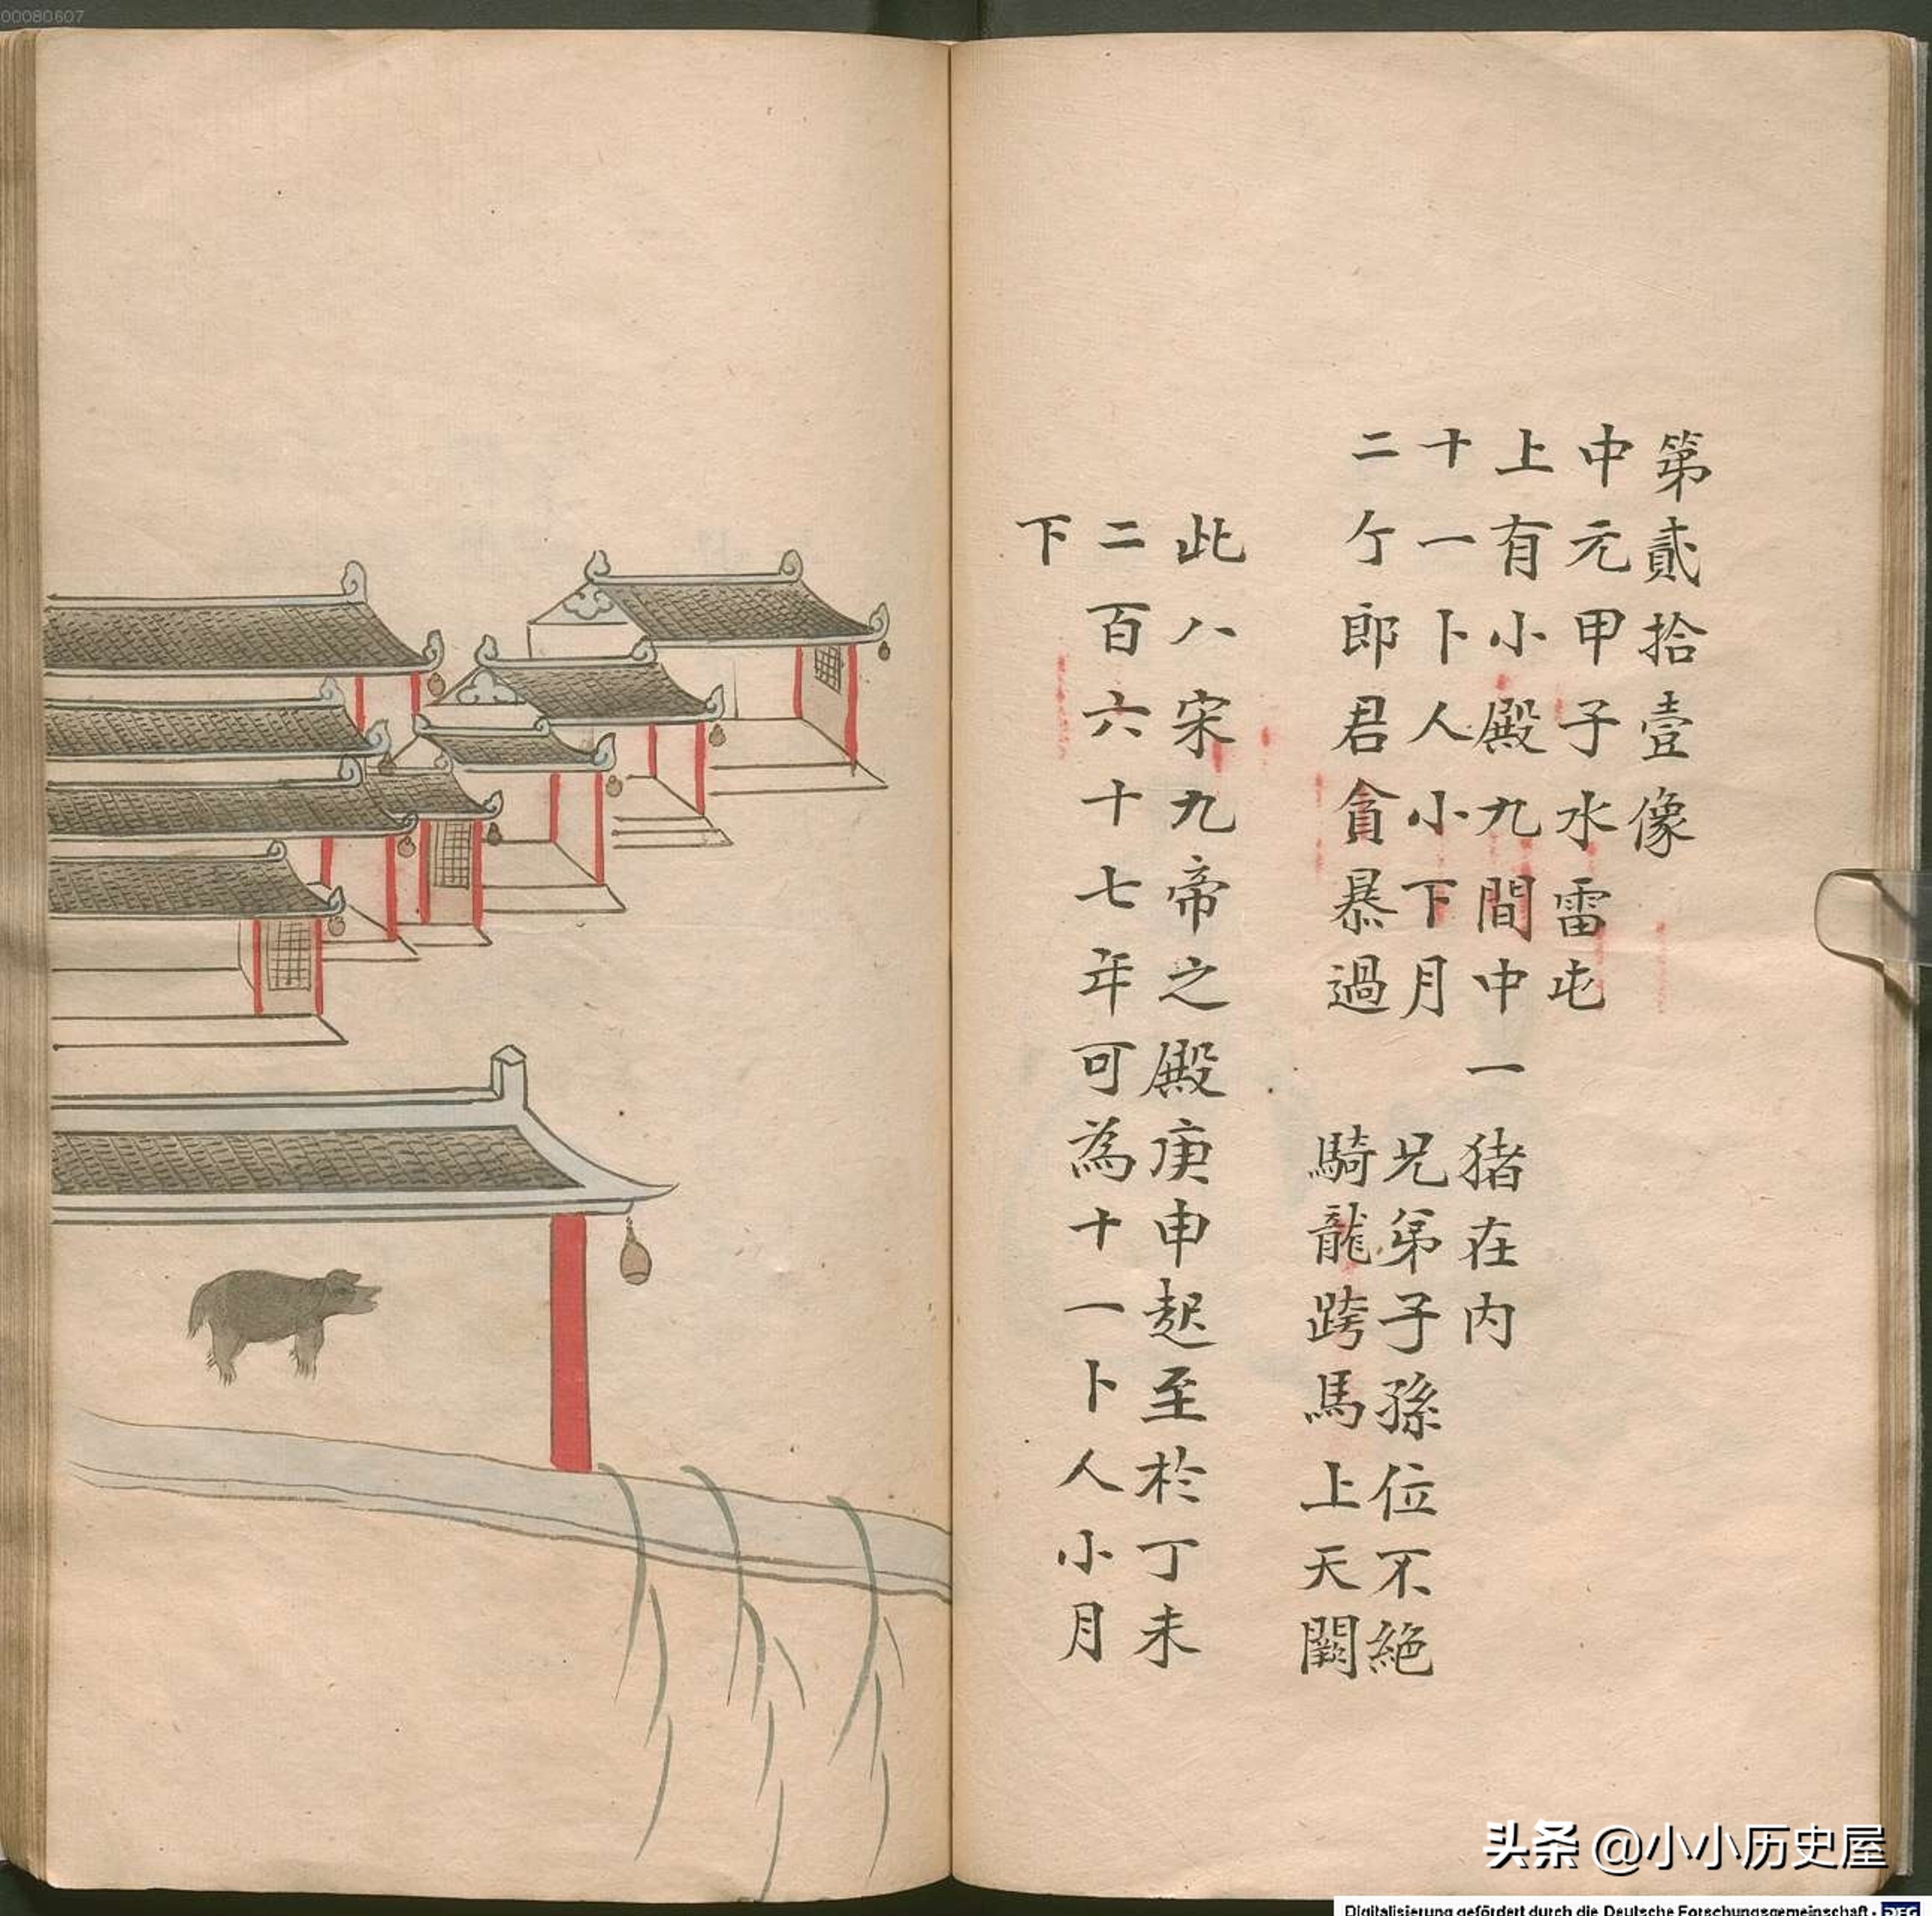 00080607
第貳拾壹像
中元甲子水雷屯
上有小殿九間中一猪在内
十一卜人小下月 兄弟子孫位不絕
二亇郎君貪暴過 騎龍跨馬上天闕
此八宋九帝之殿庚申起至於丁未
二百六十七年可為十一卜人小月
下
头条 @小小历史屋
Digitalisierung gefördert durch die Deutsche Forschungsgemeinschaft · DFG